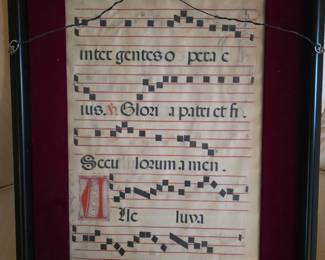 inter gentes o pera e
ius. Glori a patri et fi .
Secu lorum a men .
A lle luya